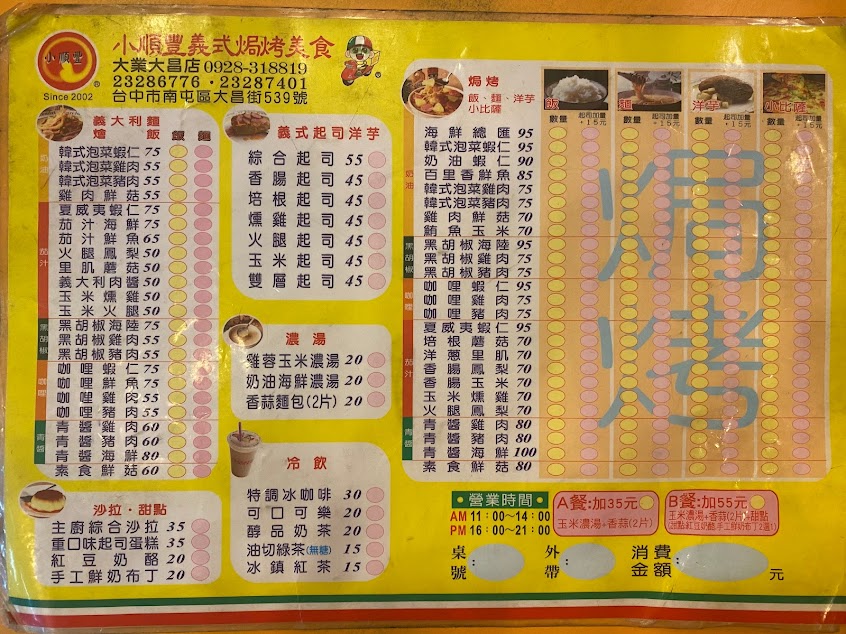 小順豐
®
Since 2002
小順豐義式焗烤美食
大業大昌店 0928-318819
23286776 · 23287401
台中市南屯區大昌街539號
義大利麵
燴飯 飯 麵
奶油
韓式泡菜蝦仁 75
韓式泡菜雞肉 55
韓式泡菜豬肉 55
雞肉鮮菇 55
茄汁
夏威夷蝦仁 75
茄汁海鮮 75
茄汁鮮魚 65
火腿鳳梨 50
里肌蘑菇 50
義大利肉醬 50
玉米燻雞 50
玉米火腿 50
黑胡椒
黑胡椒海陸 75
黑胡椒雞肉 55
黑胡椒豬肉 55
咖哩
咖哩蝦仁 75
咖哩鮮魚 75
咖哩雞肉 55
咖哩豬肉 55
青醬
青醬雞肉 60
青醬豬肉 60
青醬海鮮 80
素食鮮菇 60
沙拉·甜點
主廚綜合沙拉 35
重口味起司蛋糕 35
紅豆奶酪 20
手工鮮奶布丁 20
義式起司洋芋
綜合起司 55
香腸起司 45
培根起司 45
燻雞起司 45
火腿起司 45
玉米起司 45
雙層起司 45
濃湯
雞蓉玉米濃湯 20
奶油海鮮濃湯 20
香蒜麵包(2片) 20
冷飲
特調冰咖啡 30
可口可樂 20
醇品奶茶 20
油切綠茶(無糖) 15
冰鎮紅茶 15
焗烤
飯、麵、洋芋
小比薩
飯 麵 洋芋 小比薩
數量 起司加量+15元 數量 起司加量+15元 數量 起司加量+15元 數量 起司加量+15元
焗烤
奶油
海鮮總匯 95
韓式泡菜蝦仁 95
奶油蝦仁 90
百里香鮮魚 85
韓式泡菜雞肉 75
韓式泡菜豬肉 75
雞肉鮮菇 70
鮪魚玉米 70
黑胡椒
黑胡椒海陸 95
黑胡椒雞肉 75
黑胡椒豬肉 75
咖哩
咖哩蝦仁 95
咖哩雞肉 75
咖哩豬肉 75
茄汁
夏威夷蝦仁 95
培根蘑菇 70
洋蔥里肌 70
香腸鳳梨 70
香腸玉米 70
玉米燻雞 70
火腿鳳梨 70
青醬
青醬雞肉 80
青醬豬肉 80
青醬海鮮 100
素食鮮菇 80
·營業時間·
AM 11：00～14：00
PM 16：00～21：00
A餐:加35元
玉米濃湯+香蒜(2片)
B餐:加55元
玉米濃湯+香蒜(2片)+甜點
(甜點:紅豆奶酪.手工鮮奶布丁2選1)
桌號
外帶
消費金額 元